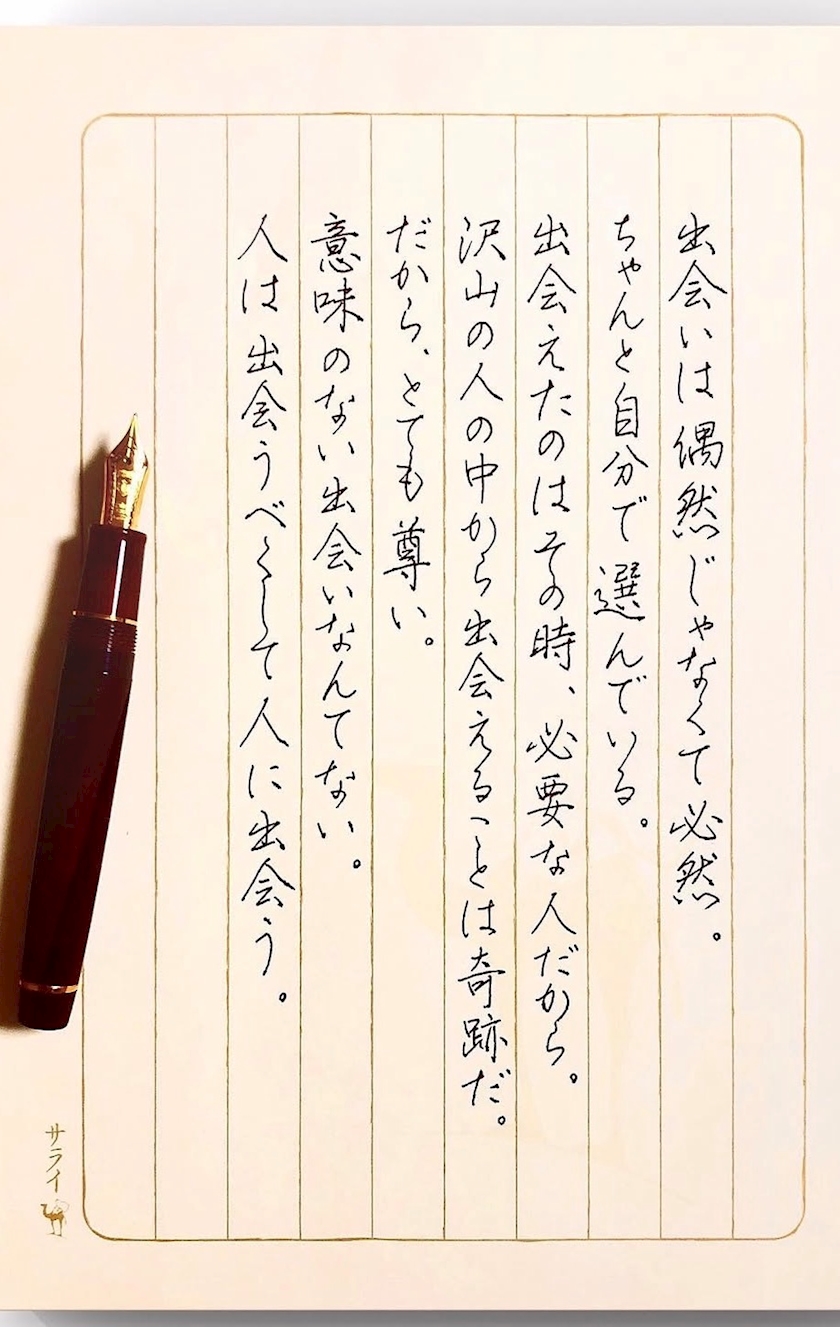 出会いは偶然じゃなくて必然。
ちゃんと自分で選んでいる。
出会えたのはその時、必要な人だから。
沢山の人の中から出会えることは奇跡だ。
だから、とても尊い。
意味のない出会いなんてない。
人は出会うべくして人に出会う。
サライ